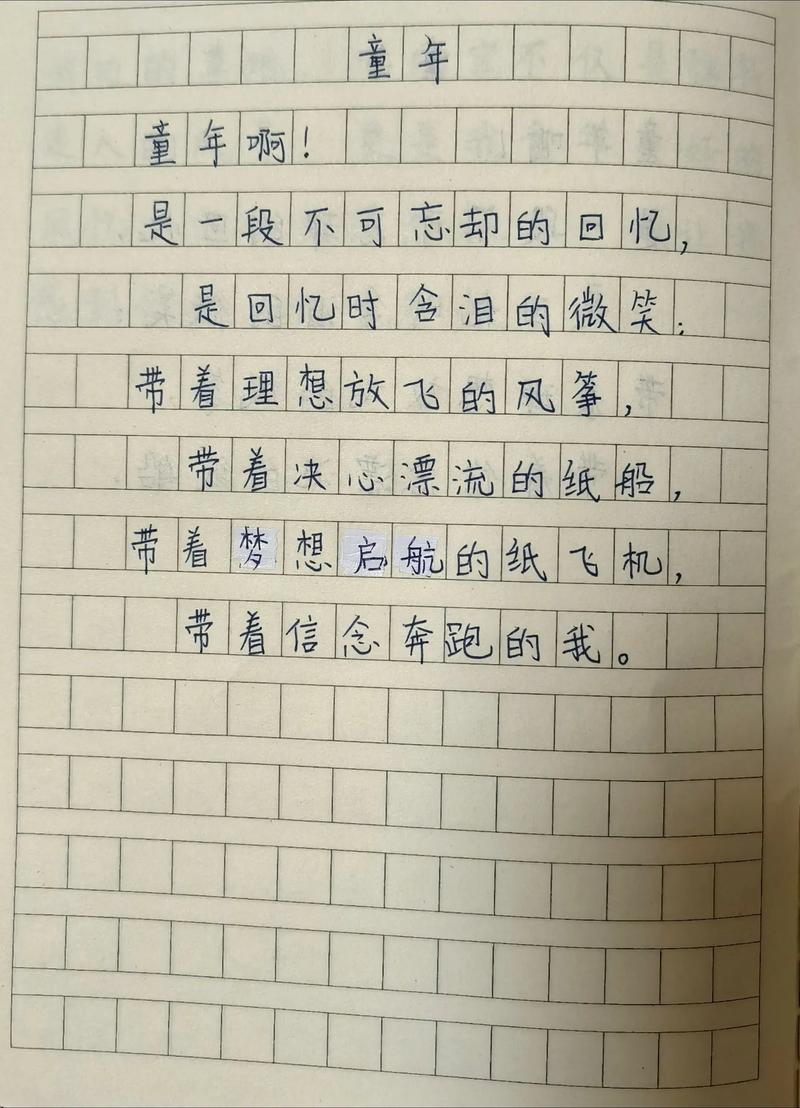 童年
童年啊!
是一段不可忘却的回忆,
是回忆时含泪的微笑;
带着理想放飞的风筝,
带着决心漂流的纸船,
带着梦想启航的纸飞机,
带着信念奔跑的我。